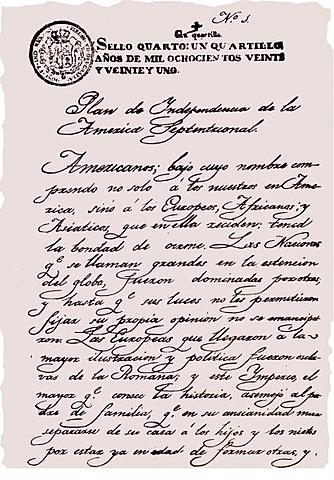 Nº 1.
Un quartillo.
SELLO QUARTO: UN QUARTILLO,
AÑOS DE MIL OCHOCIENTOS VEINTE
Y VEINTE Y UNO.
Plan de Independencia de la
America Septentrional.
Americanos; bajo cuyo nombre com-
prendo no solo á los nuestros en Ame-
rica, sinó á los Europeos, Africanos; y
Asiaticos, que en ella reciden: tened
la bondad de oirme. Las Naciones
qe. se llaman grandes en la estencion
del globo, fueron dominadas por otras,
y hasta qe. sus luces no les permitieron
fijar su propia opinion no se emancipa-
ron. Las Europeas que llegaron á la
mayor ilustracion y politica fueron escla-
vas de la Romana; y este Imperio, el
mayor qe. conoce la historia, asemejó al pa-
dre de familia, qe. en su ancianidad mira
separarse de su casa á los hijos y los nietos
por estar ya en edad de formar otras, y